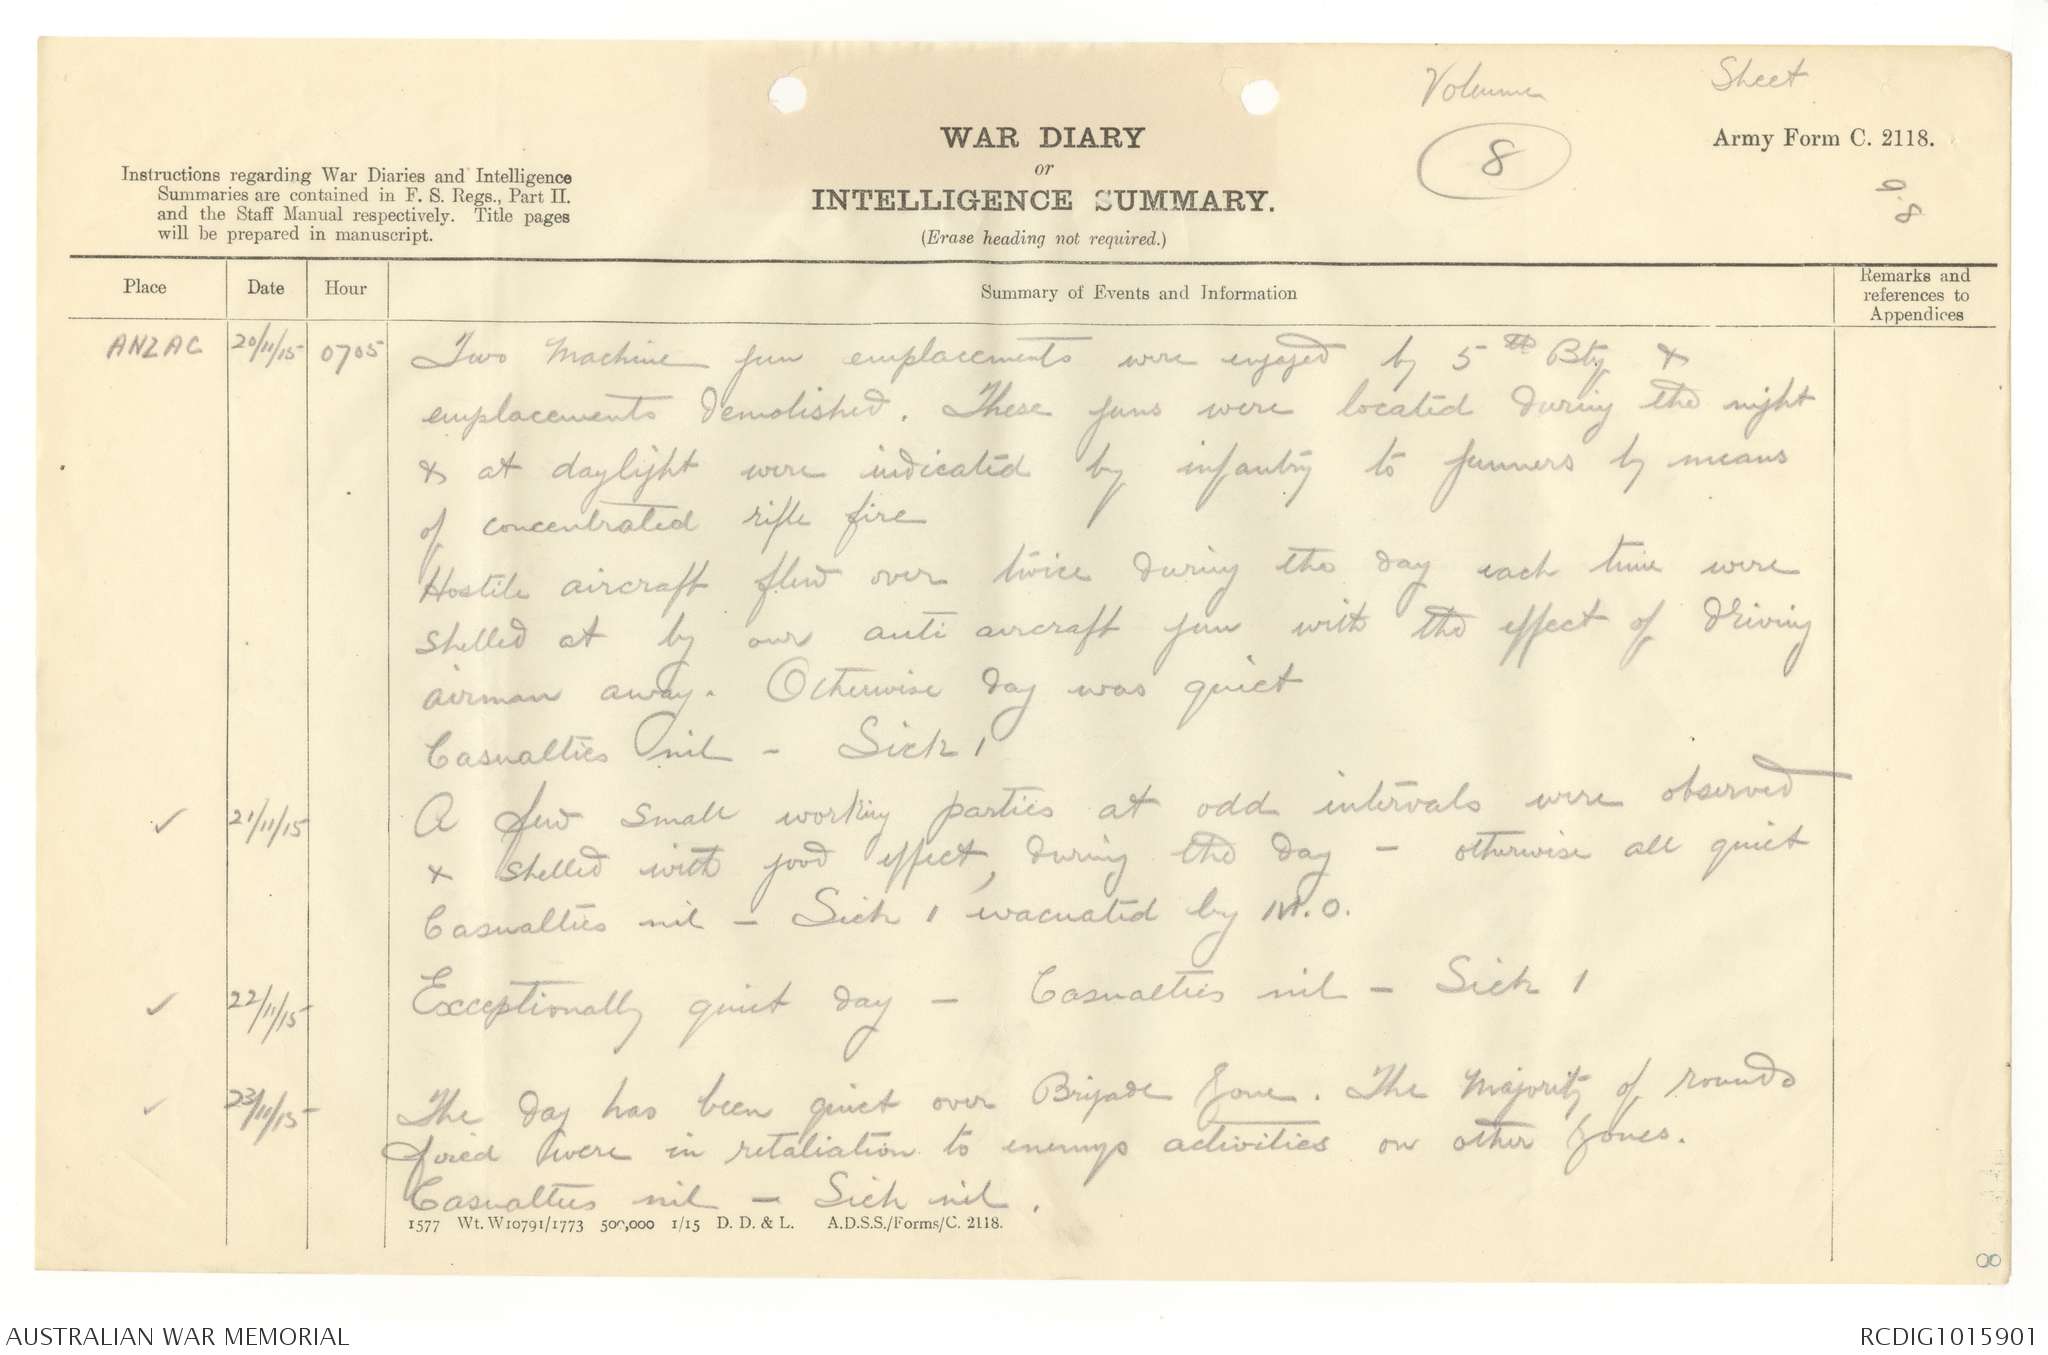 Volume
Sheet
8
Army Form C. 2118.
WAR DIARY
or
INTELLIGENCE SUMMARY.
(Erase heading not required.)
Instructions regarding War Diaries and Intelligence
Summaries are contained in F. S. Regs., Part II.
and the Staff Manual respectively. Title pages
will be prepared in manuscript.
Place
Date
Hour
Summary of Events and Information
Remarks and
references to
Appendices
ANZAC 20/11/15 0705 Two Machine gun emplacements were engaged by 5th Bty &
emplacements demolished. These guns were located during the night
& at daylight were indicated by infantry to gunners by means
of concentrated rifle fire
Hostile aircraft flew over twice during the day each time were
shelled at by our anti aircraft gun with the effect of driving
airman away. Otherwise day was quiet
Casualties nil - Sick 1
✓ 21/11/15 A few small working parties at odd intervals were observed
& shelled with good effect, during the day - otherwise all quiet
Casualties nil - Sick 1 evacuated by M.O.
✓ 22/11/15 Exceptionally quiet day - Casualties nil - Sick 1
✓ 23/11/15 The day has been quiet over Brigade Zone. The Majority of rounds
fired were in retaliation to enemys activities on other Zones.
Casualties nil - Sick nil.
1577 Wt. W10791/1773 500,000 1/15 D. D. & L. A.D.S.S./Forms/C. 2118.
AUSTRALIAN WAR MEMORIAL
RCDIG1015901